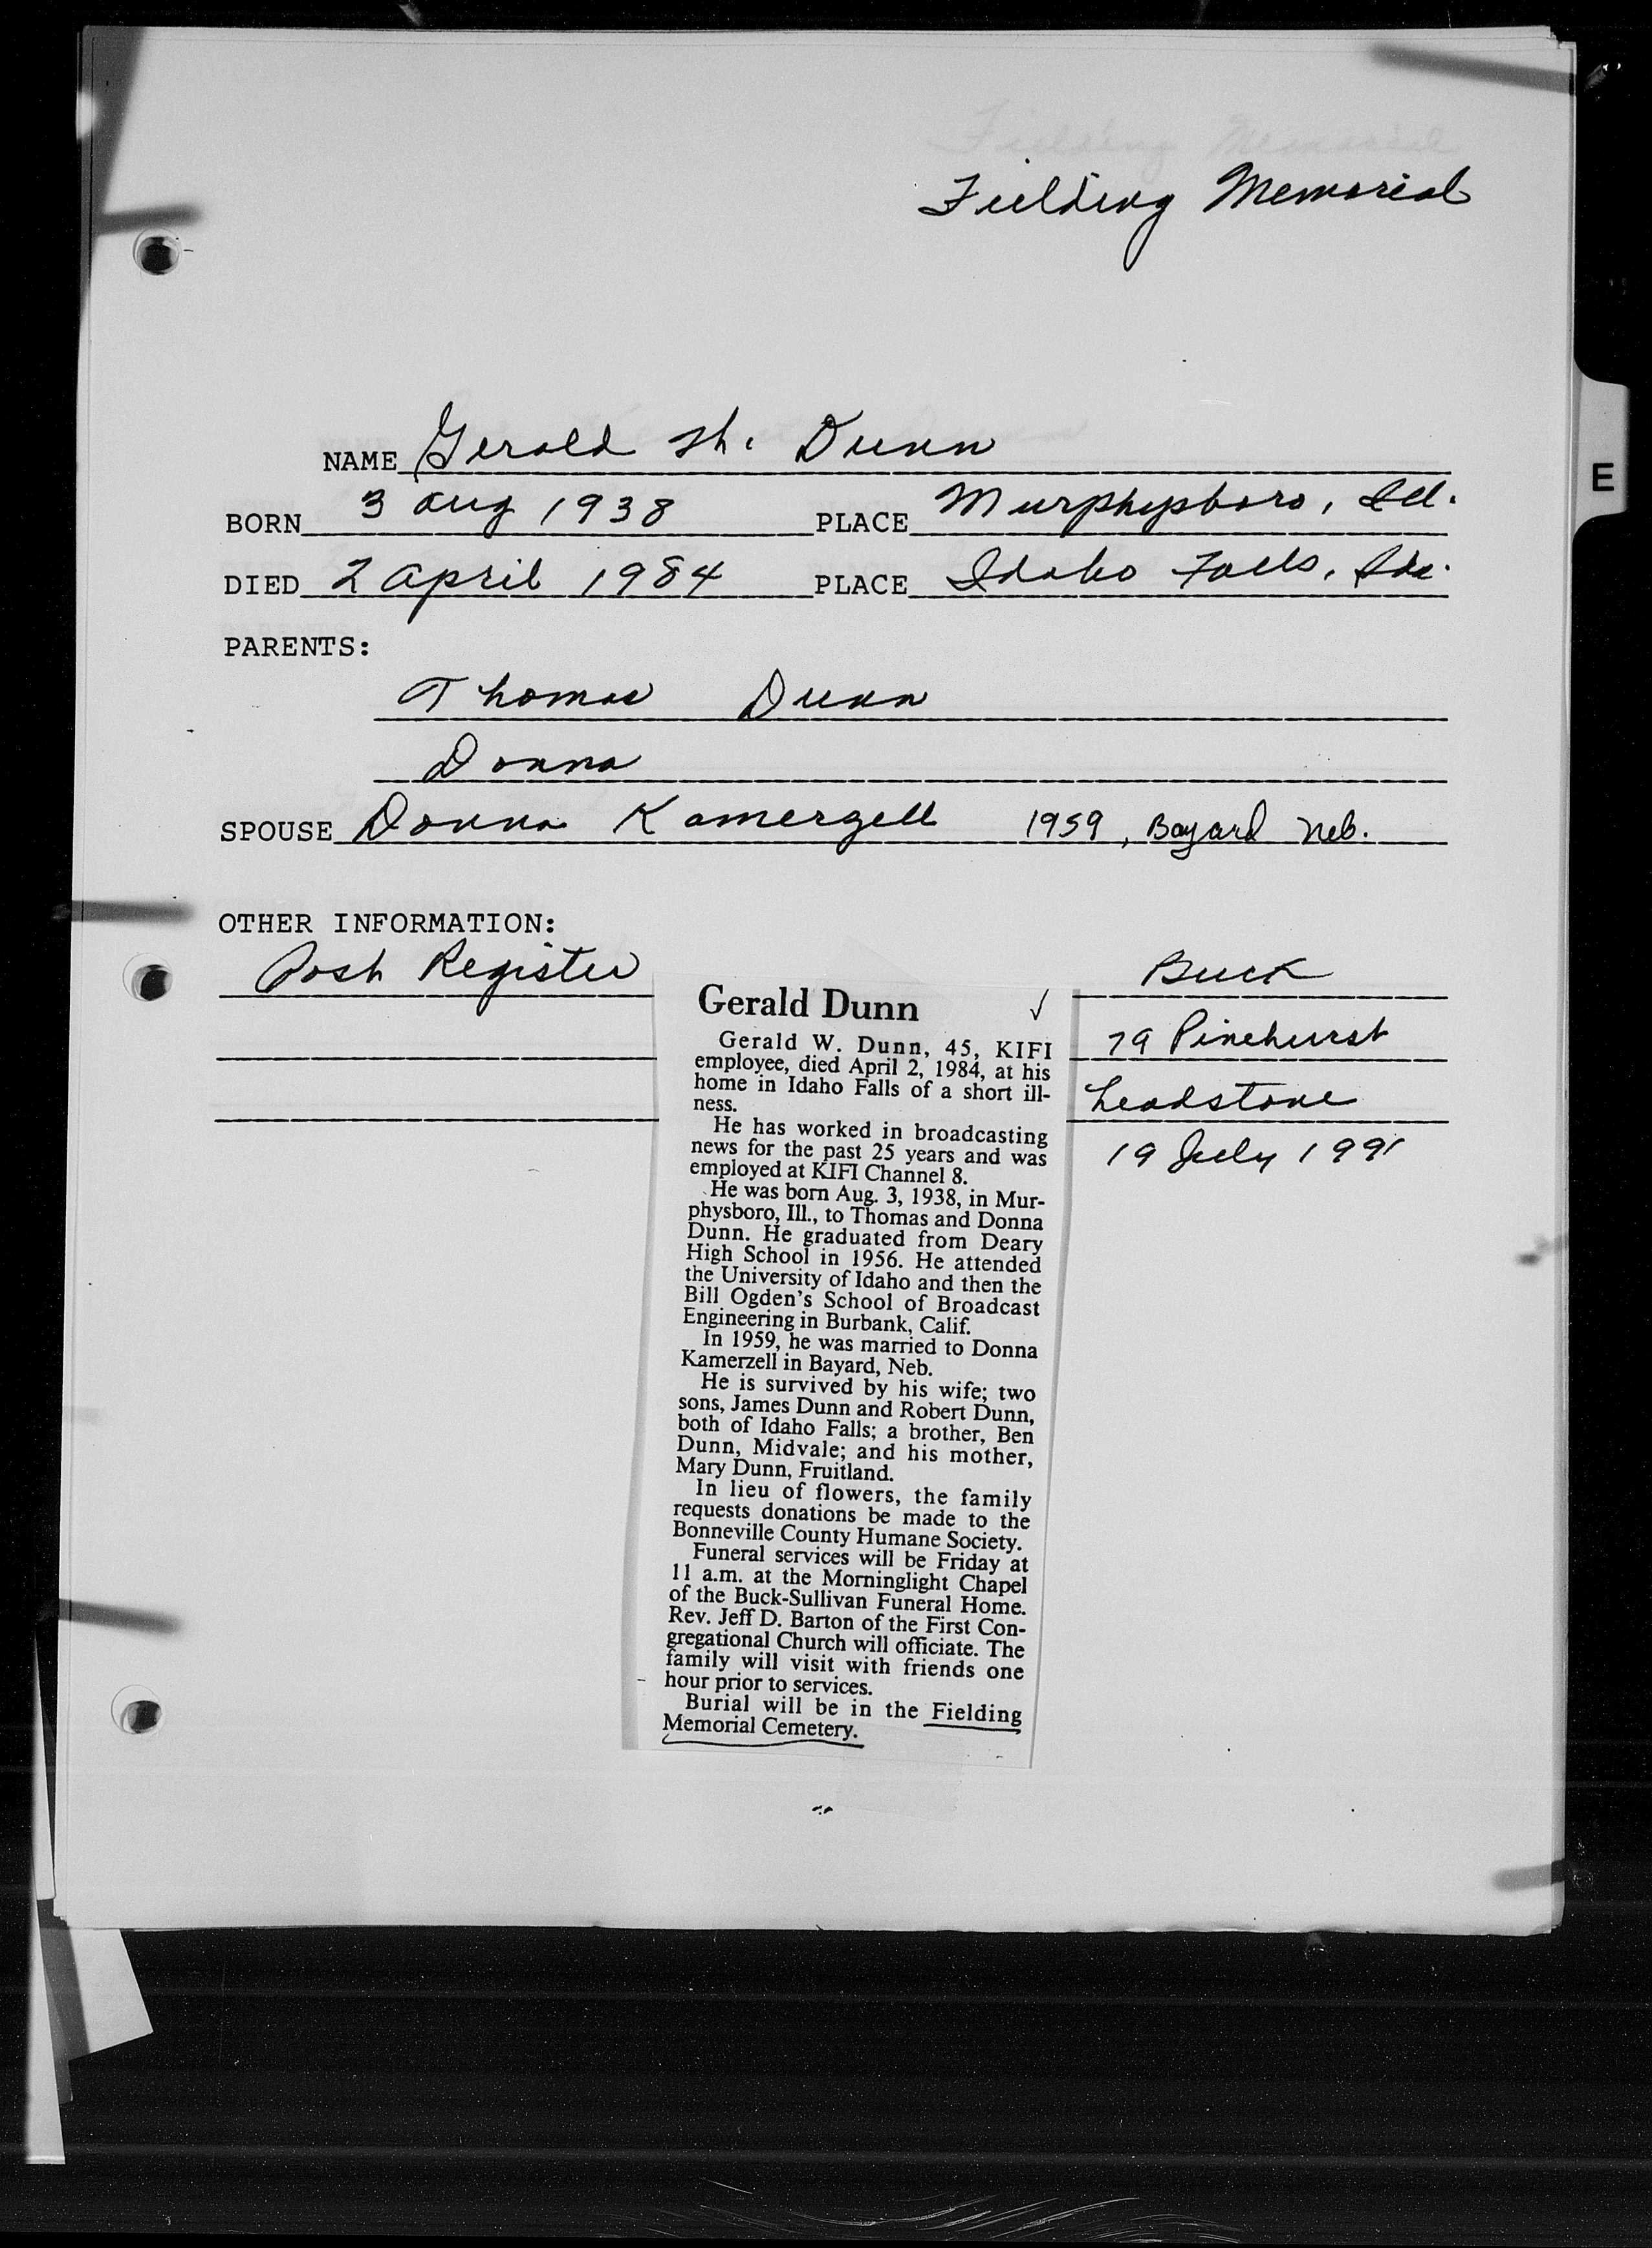 Fielding Memorial
NAME Gerald W. Dunn
BORN 3 Aug 1938 PLACE Murphysboro, Ill.
DIED 2 April 1984 PLACE Idaho Falls, Ida.
PARENTS:
Thomas Dunn
Donna
SPOUSE Donna Kamerzell 1959, Bayard Neb.
OTHER INFORMATION:
Post Register
Gerald Dunn ✓
Gerald W. Dunn, 45, KIFI
employee, died April 2, 1984, at his
home in Idaho Falls of a short ill-
ness.
He has worked in broadcasting
news for the past 25 years and was
employed at KIFI Channel 8.
He was born Aug. 3, 1938, in Mur-
physboro, Ill., to Thomas and Donna
Dunn. He graduated from Deary
High School in 1956. He attended
the University of Idaho and then the
Bill Ogden's School of Broadcast
Engineering in Burbank, Calif.
In 1959, he was married to Donna
Kamerzell in Bayard, Neb.
He is survived by his wife; two
sons, James Dunn and Robert Dunn,
both of Idaho Falls; a brother, Ben
Dunn, Midvale; and his mother,
Mary Dunn, Fruitland.
In lieu of flowers, the family
requests donations be made to the
Bonneville County Humane Society.
Funeral services will be Friday at
11 a.m. at the Morninglight Chapel
of the Buck-Sullivan Funeral Home.
Rev. Jeff D. Barton of the First Con-
gregational Church will officiate. The
family will visit with friends one
hour prior to services.
Burial will be in the Fielding
Memorial Cemetery.
Buck
79 Pinehurst
Headstone
19 July 1991
E